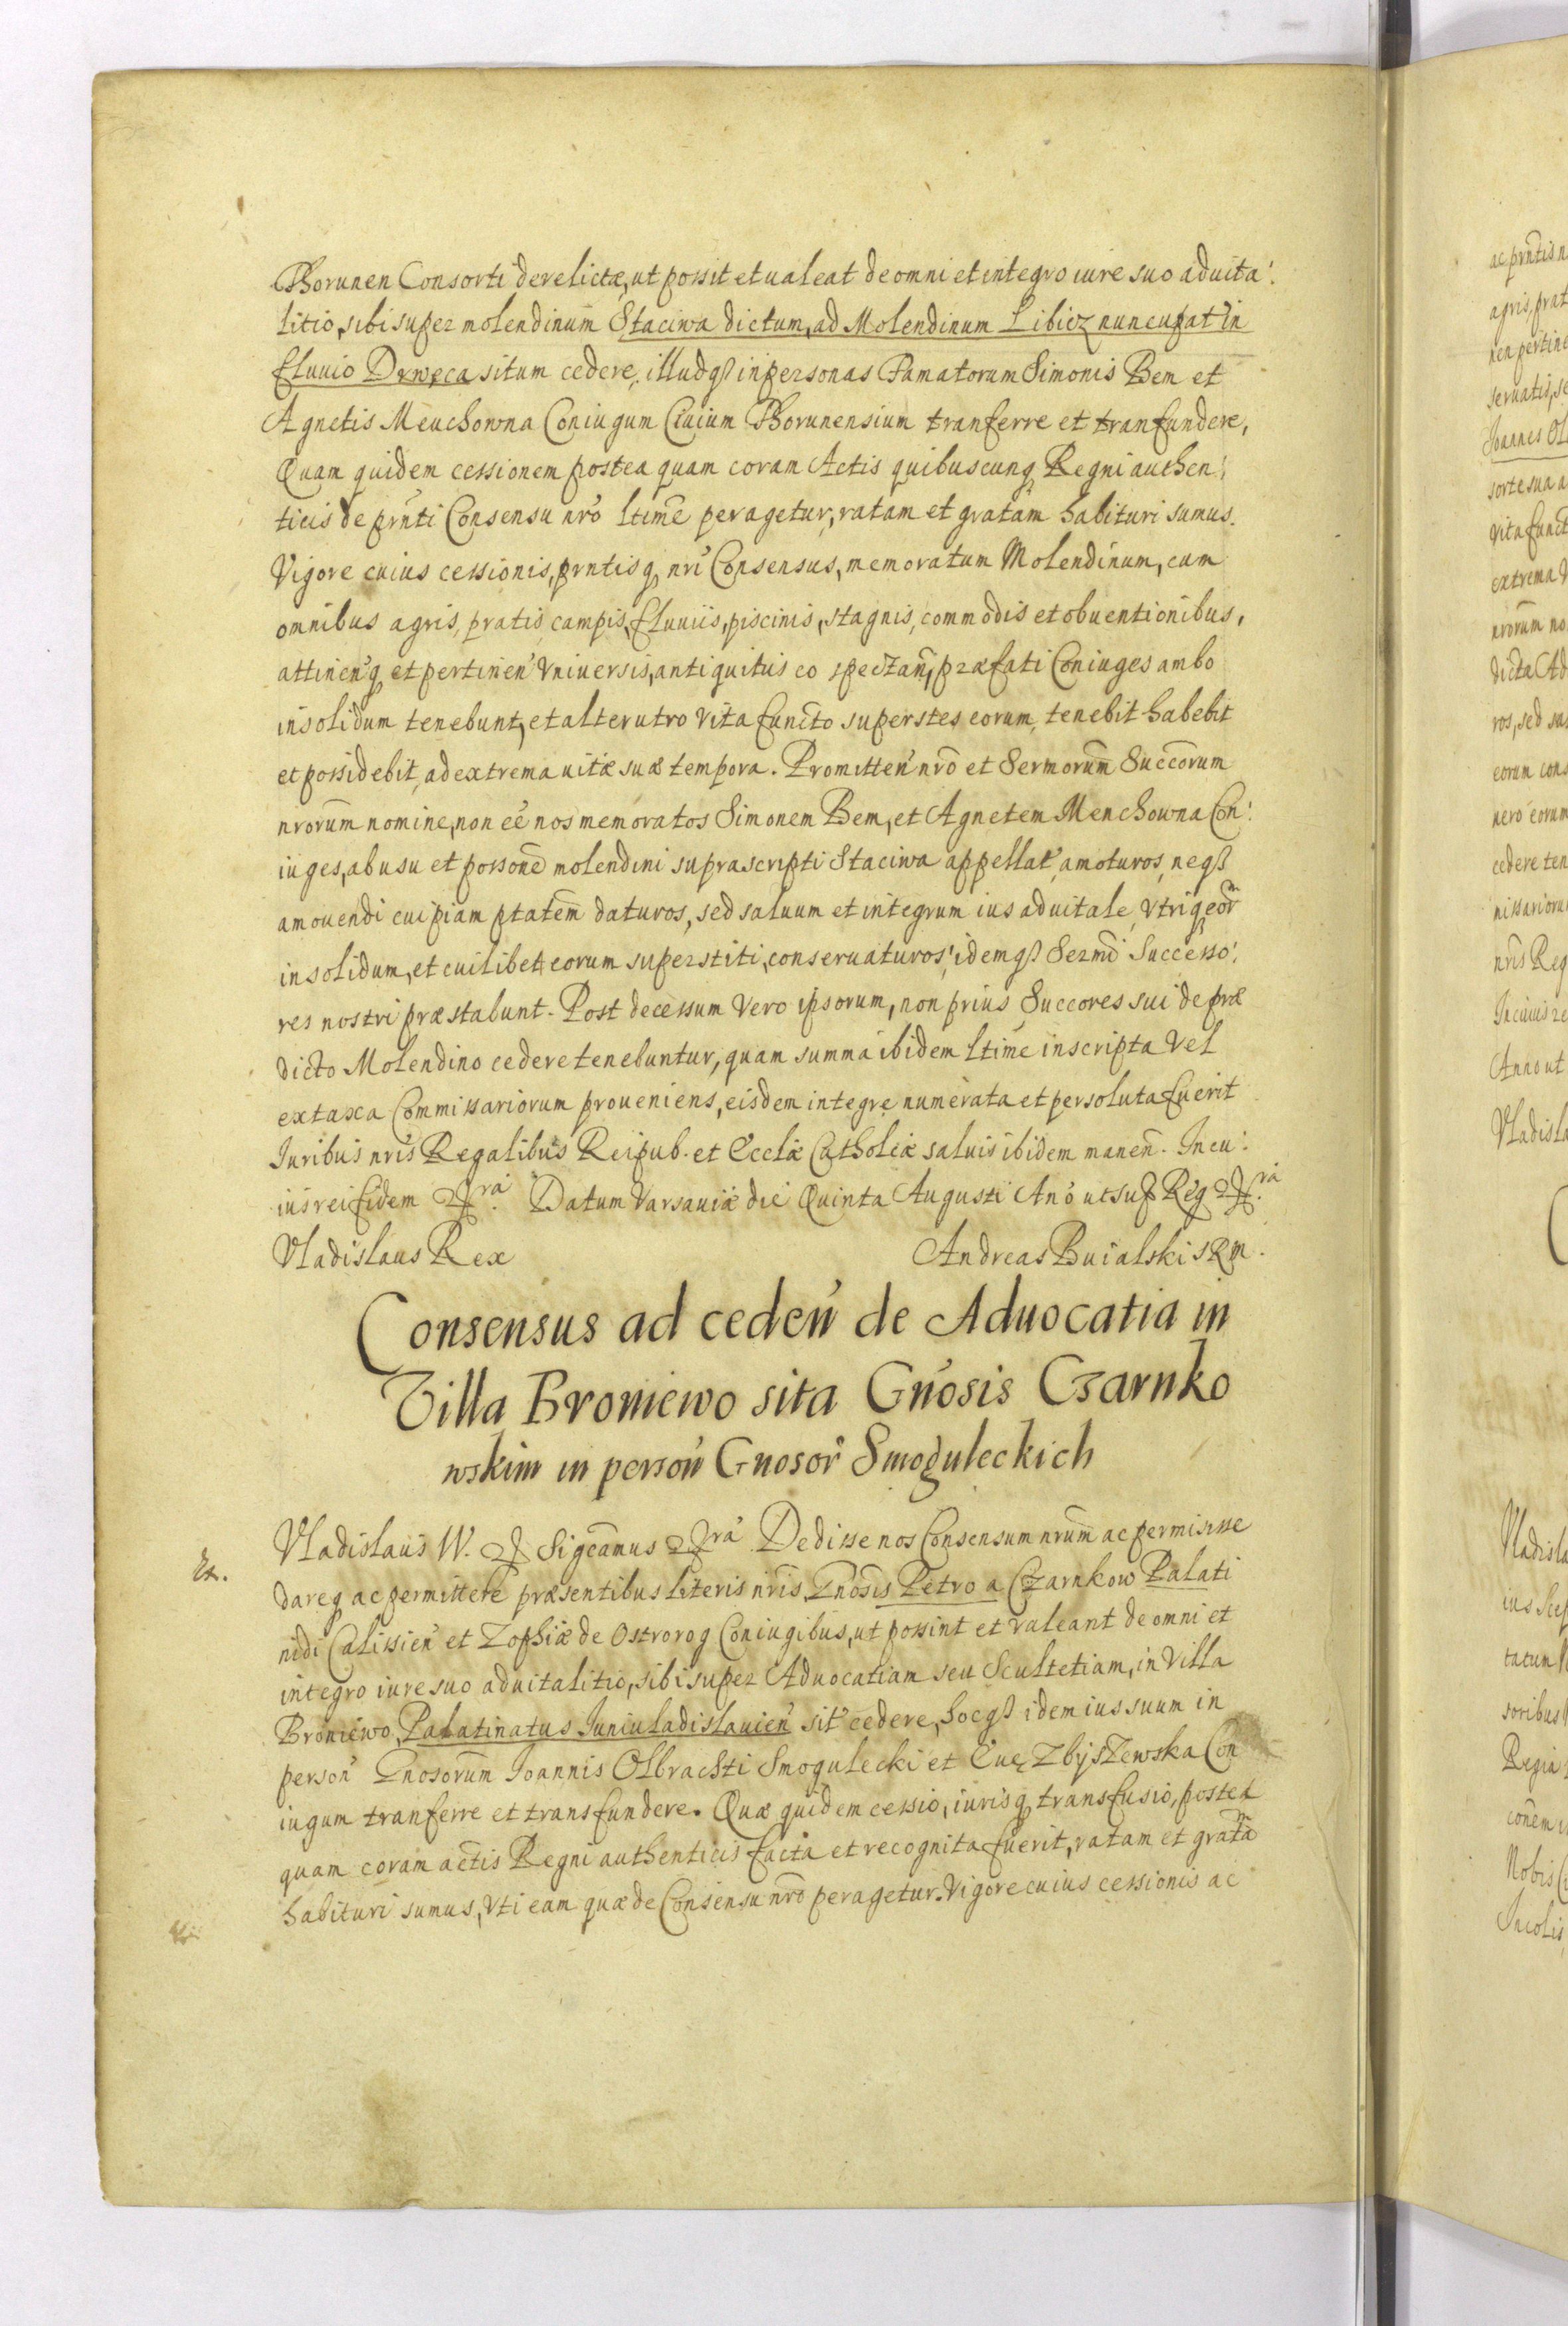 Thorunen Consorti derelictæ, ut possit et ualeat de omni et integro iure suo aduita:
litio, sibi super molendinum Staciwa dictum, ad Molendinum Libicz nuncupat in
fluuio Drwęca situm cedere, illudq3 in personas Famatorum Simonis Bem et
Agnetis Menchowna Coniugum Ciuium Thorunensium tranferre et tranfundere,
Quam quidem cessionem postea quam coram Actis quibuscunq Regni authen:
ticis de prnti Consensu nro ltime peragetur, ratam et gratam habituri sumus.
Vigore cuius cessionis, prntisq nri Consensus, memoratum Molendinum, cum
omnibus agris, pratis, campis, fluuiis, piscinis, stagnis, commodis et obuentionibus,
attinenq et pertinen Vniuersis, antiquitus eo spectan, præfati Coniuges ambo
insolidum tenebunt, et alterutro vita functo superstes eorum, tenebit habebit
et possidebit, ad extrema uitæ suæ tempora. Promitten nro et Sermorum Succorum
nrorum nomine, non ee nos memoratos Simonem Bem, et Agnetem Menchowna Con:
iuges, ab usu et possone molendini suprascripti Staciwa appellat, amoturos, neq3
amouendi cuipiam ptatem daturos, sed saluum et integrum ius aduitale, vtriq eor
insolidum, et cuilibet eorum superstiti, conseruaturos; idemq3 Sermi Successo:
res nostri præstabunt. Post decessum Vero ipsorum, non prius Succores sui de præ
dicto Molendino cedere tenebuntur, quam summa ibidem ltime inscripta Vel
ex taxa Commissariorum proueniens, eisdem integre numerata et persoluta fuerit
Iuribus nris Regalibus Reipub. et Ecclæ Catholicæ saluis ibidem manen. In cu:
ius rei fidem &ra. Datum Varsauiæ die Quinta Augusti Ano ut sup Reg &ra.
Vladislaus Rex Andreas Buialski SRM.
Consensus ad ceden de Aduocatia in
Villa Broniewo sita Gnosis Czarnko
wskim in person Gnosor Smoguleckich
Vladislaus IV. & Sigcamus &ra Dedisse nos Consensum nrum ac permisisse
dareq ac permittere præsentibus literis nris, Gnosis Petro a Czarnkow Palati
nidi Calissien et Zophiæ de Ostrorog Coniugibus, ut possint et valeant de omni et
integro iure suo aduitalitio, sibi super Aduocatiam seu Scultetiam, in Villa
Broniewo, Palatinatus Iuniuladislauien sit cedere, hocq3 idem ius suum in
person Gnosorum Ioannis Olbrachti Smogulecki et Euę Zbyszewska Con
iugum tranferre et transfundere. Quæ quidem cessio, iurisq transfusio, postea
quam coram actis Regni authenticis facta et recognita fuerit, ratam et gratam
habituri sumus, Vti eam quæ de Consensu nro peragetur. Vigore cuius cessionis ac